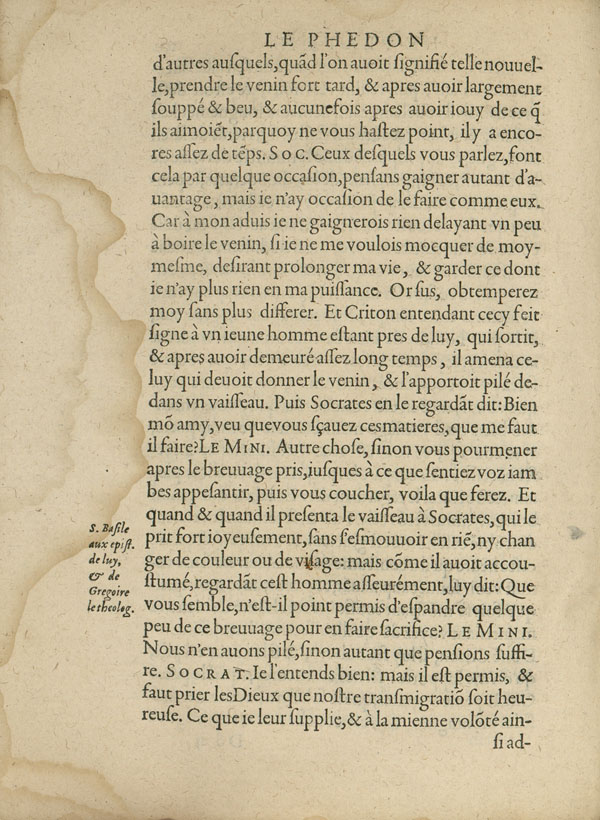 LE PHEDON
d'autres auſquels, quãd l'on auoit ſignifié telle nouuel-
le, prendre le venin fort tard, & apres auoir largement
ſouppé & beu, & aucunefois apres auoir iouy de ce q̃
ils aimoiẽt, parquoy ne vous haſtez point, il y a enco-
res aſſez de tẽps. SOC. Ceux deſquels vous parlez, font
cela par quelque occaſion, penſans gaigner autant d'a-
uantage, mais ie n'ay occaſion de le faire comme eux.
Car à mon aduis ie ne gaignerois rien delayant vn peu
à boire le venin, ſi ie ne me voulois mocquer de moy-
meſme, deſirant prolonger ma vie, & garder ce dont
ie n'ay plus rien en ma puiſſance. Or ſus, obtemperez
moy ſans plus differer. Et Criton entendant cecy feit
ſigne à vn ieune homme eſtant pres de luy, qui ſortit,
& apres auoir demeuré aſſez long temps, il amena ce-
luy qui deuoit donner le venin, & l'apportoit pilé de-
dans vn vaiſſeau. Puis Socrates en le regardãt dit: Bien
mõ amy, veu que vous ſçauez ces matieres, que me faut
il faire? LE MINI. Autre choſe, ſinon vous pourmener
apres le breuuage pris, iuſques à ce que ſentiez voz iam
bes appeſantir, puis vous coucher, voila que ferez. Et
quand & quand il preſenta le vaiſſeau à Socrates, qui le
prit fort ioyeuſement, ſans ſ'eſmouuoir en riẽ, ny chan
ger de couleur ou de viſage: mais cõme il auoit accou-
ſtumé, regardãt ceſt homme aſſeurément, luy dit: Que
vous ſemble, n'eſt-il point permis d'eſpandre quelque
peu de ce breuuage pour en faire ſacrifice? LE MINI.
Nous n'en auons pilé, ſinon autant que penſions ſuffi-
re. SOCRAT. Ie l'entends bien: mais il eſt permis, &
faut prier les Dieux que noſtre tranſmigratiõ ſoit heu-
reuſe. Ce que ie leur ſupplie, & à la mienne volõté ain-
ſi ad-
S. Baſile
aux epiſt.
de luy,
& de
Gregoire
le theolog.